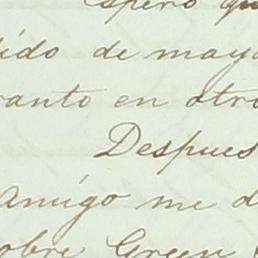 espero qu
dido de mayo
tanto en otro
Despues
amigo me d
sobre Green